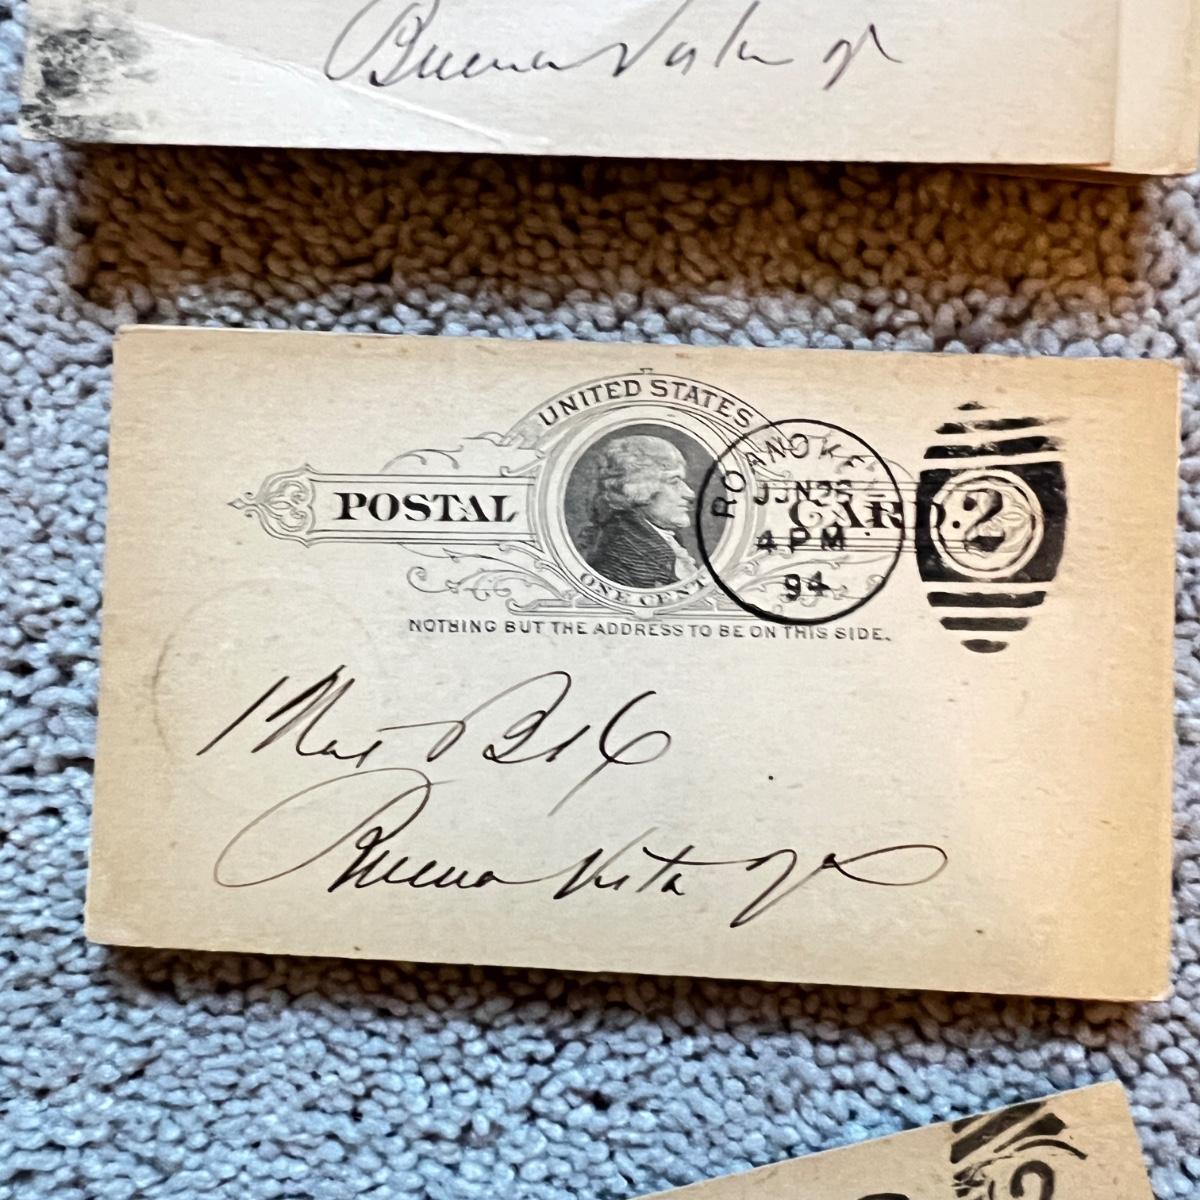 Buena Vista Va
UNITED STATES
POSTAL CARD.
ONE CENT
NOTHING BUT THE ADDRESS TO BE ON THIS SIDE.
ROANOKE
JUN 26
4 PM
94
2
Buena Vista Va